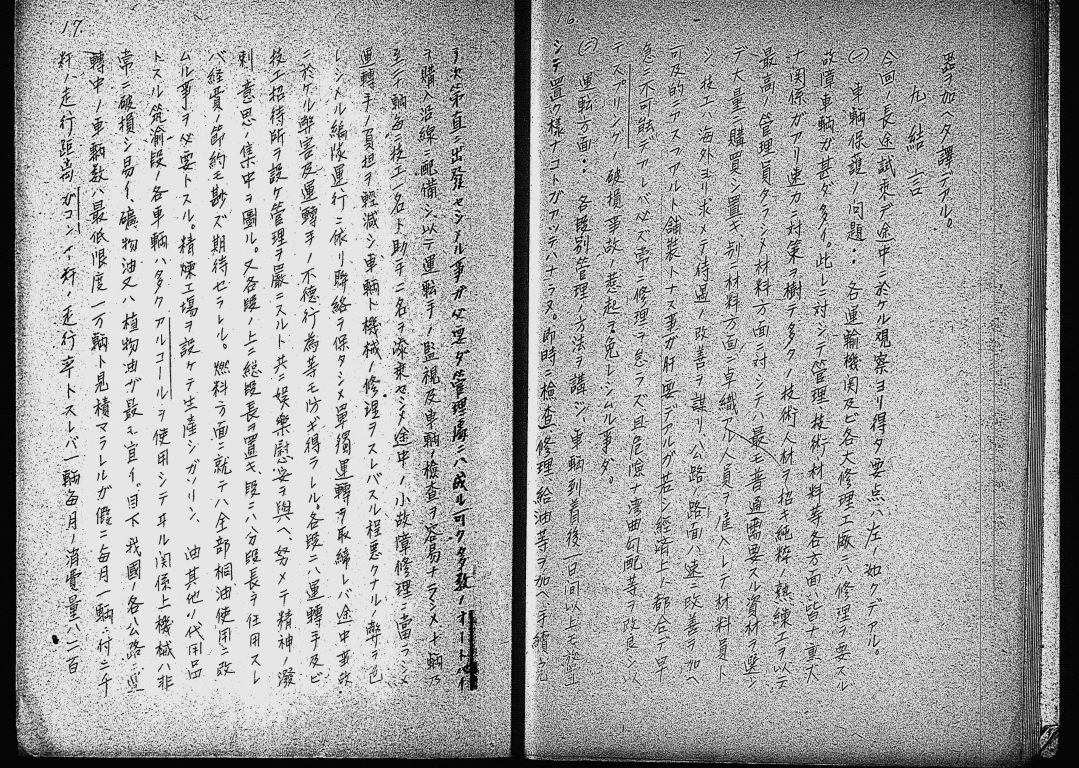 16.
加ヘタ譯デアル。
九 結言
今回ノ長途試乘デ途中ニ於ケル觀察ヨリ得タ要点ハ左ノ如クデアル。
(一) 車輌保護ノ問題. 各運輸機関及ビ各大修理工廠ハ修理ヲ要スル
故障車輌ガ甚ダ多イ。此レニ対シテ管理、技術、材料等各方面ハ皆十重大
ナ関係ガアリ速カニ対策ヲ樹テ多クノ技術人材ヲ招キ純粋ノ熟練工ヲ以テ
最高ノ管理員タラシメ材料方面ニ対シテハ最モ普通需要スル資材ヲ選ン
デ大量ニ購買シ置キ、別ニ材料方面ニ卓識アル人員ヲ准入レテ材料員ト
シ、技工ハ海外ヨリ求メテ待遇ノ改善ヲ謀リ、公路ノ路面ハ速ニ改善ヲ加ヘ
可及的ニアスフアルト舗装トナス事ガ肝要デアルガ若シ經済上ノ都合デ早
急ニ不可能デアレバ必ズ常ニ修理ヲ怠ラズ且危險ナ湾曲勾配等ヲ改良シ以
テスプリングノ破損事故ノ惹起ヲ免レシムル事ダ。
(二) 運転方面. 各段別管理ノ方法ヲ講ジ、車輌到着後一日間以上モ放置
シテ置ク様ナコトガアツテハナラヌ。即時ニ檢查修理、給油等ヲ加ヘ手續完
17.
了次第直ニ出發セシメル事ガ必要ダ。管理處ニハ成ル可クタ多数ノオートバイ
ヲ購入沿線ニ配備シ以テ運転手ノ監視及車輌ノ檢查ヲ容易ナラシメ十輌乃
至二十輌毎ニ技工一名ト助手二名ヲ添乘セシメ途中ノ小故障修理ニ當ラシメ
運轉手ノ負担ヲ軽減シ車輌ト機械ノ修理ヲスレバスル程悪クナルノ弊ヲ免
レシメル。編隊運行ニ依リ聯絡ヲ保タシメ單獨運轉ヲ取締レバ途中事故
ニ於ケル弊害及運轉手ノ不德行為等モ防ギ得ラレル。各段ニハ運轉手及ビ
技工招待所ヲ設ケ管理ヲ嚴ニスルト共ニ娯樂慰安ヲ與ヘ、努メテ精神ノ潑
剌、意思ノ集中ヲ圖ル。又各段ノ上ニ總段長ヲ置キ、段ニハ分段長ヲ任用スレ
バ経費ノ節約モ尠ズ期待セラレル。燃料方面ニ就テハ全部桐油使用ニ改
ムル事ヲ必要トスル。精煉工場ヲ設ケテ生產シガソリン、油其他ノ代用品
トスル。筑渝段ノ各車輌ハ多クアルコールヲ使用シテヰル関係上機械ハ非
常ニ破損シ易イ。礦物油又ハ植物油ガ最モ宜イ。目下我國ノ各公路ノ運
轉中ノ車輌数ハ最低限度一万輌ト見積マラレルガ假ニ毎月一輌ニ付ニ千
粁ノ走行距离ガ